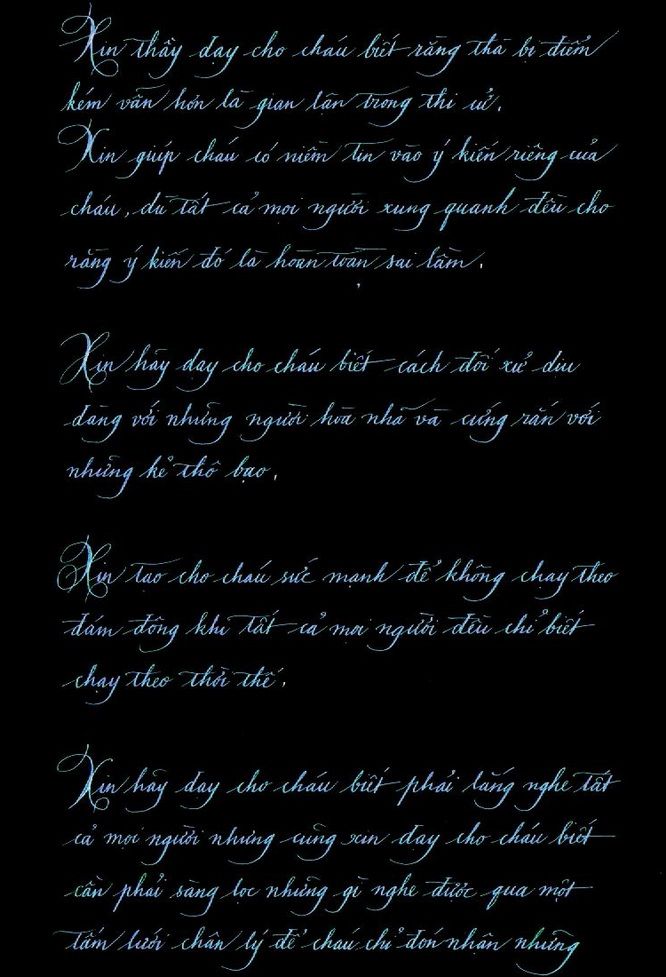 Xin thầy dạy cho cháu biết rằng thà bị điểm
kém vẫn hơn là gian lận trong thi cử.
Xin giúp cháu có niềm tin vào ý kiến riêng của
cháu, dù tất cả mọi người xung quanh đều cho
rằng ý kiến đó là hoàn toàn sai lầm.
Xin hãy dạy cho cháu biết cách đối xử dịu
dàng với những người hòa nhã và cứng rắn với
những kẻ thô bạo.
Xin tạo cho cháu sức mạnh để không chạy theo
đám đông khi tất cả mọi người đều chỉ biết
chạy theo thời thế.
Xin hãy dạy cho cháu biết phải lắng nghe tất
cả mọi người nhưng cũng xin dạy cho cháu biết
cần phải sàng lọc những gì nghe được qua một
tấm lưới chân lý để cháu chỉ đón nhận những